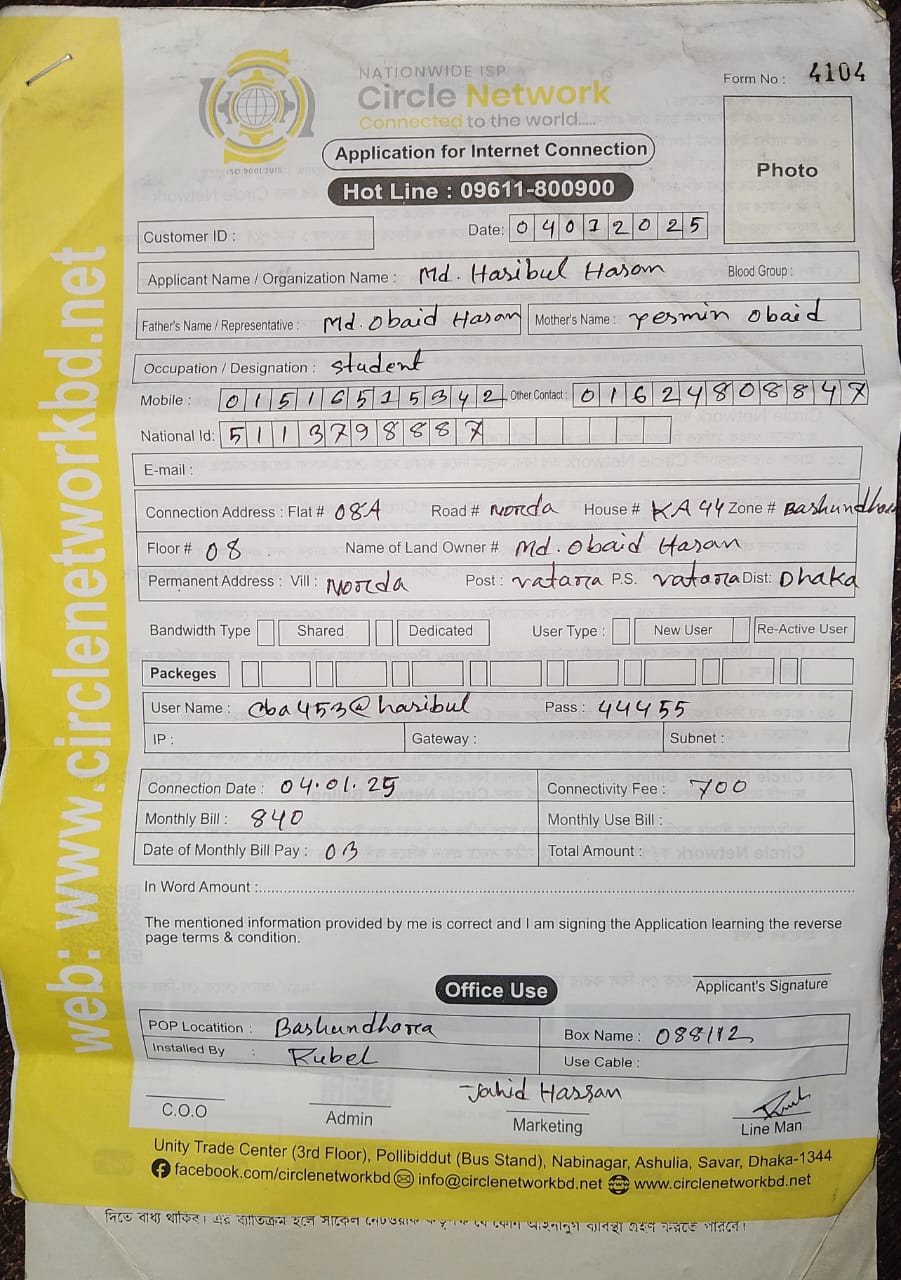 NATIONWIDE ISP
Circle Network
Connected to the world.....
ISO 9001:2015
Form No : 4104
Photo
Application for Internet Connection
Hot Line : 09611-800900
Customer ID :
Date: 04012025
Applicant Name / Organization Name : Md. Hasibul Hasan Blood Group :
Father's Name / Representative : Md. Obaid Hasan Mother's Name : Yesmin Obaid
Occupation / Designation : Student
Mobile : 01516515342 Other Contact : 01624808847
National Id: 5113798887
E-mail :
Connection Address : Flat # 08A Road # Norda House # KA 44 Zone # Bashundhara
Floor # 08 Name of Land Owner # Md. Obaid Hasan
Permanent Address : Vill : Norda Post : vatara P.S. vatara Dist: Dhaka
Bandwidth Type Shared Dedicated User Type : New User Re-Active User
Packeges
User Name : cba453@hasibul Pass : 44455
IP : Gateway : Subnet :
Connection Date : 04.01.25 Connectivity Fee : 700
Monthly Bill : 840 Monthly Use Bill :
Date of Monthly Bill Pay : 03 Total Amount :
In Word Amount :
The mentioned information provided by me is correct and I am signing the Application learning the reverse
page terms & condition.
Applicant's Signature
Office Use
POP Locatition : Bashundhara Box Name : 088/12
Installed By : Rubel Use Cable :
Jahid Hassan
C.O.O Admin Marketing Line Man
Unity Trade Center (3rd Floor), Pollibiddut (Bus Stand), Nabinagar, Ashulia, Savar, Dhaka-1344
facebook.com/circlenetworkbd info@circlenetworkbd.net www.circlenetworkbd.net
web: www.circlenetworkbd.net